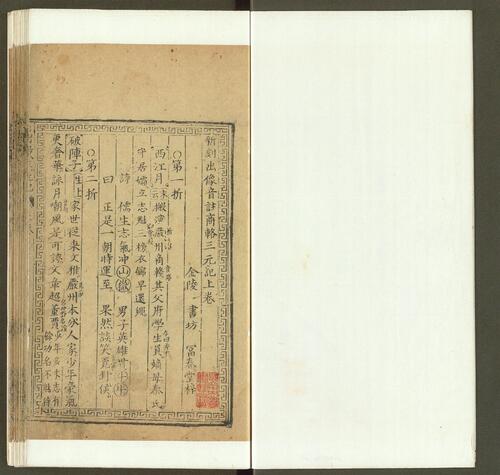 新刻出像音註商輅三元記上卷
金陵 書坊 富春堂梓
○第一折
西江月 末云 搬演嚴州商輅其父府學生員嫡母秦氏
守居孀立志魁三榜衣錦早還鄉
詩 儒生志氣冲 男子英雄
曰 正是一朝時運至 果然談笑覓封侯
○第二折
破陣子 生上 家世從來文雅嚴州本分人家少年豪氣
更奢華詠月嘲風是可誇文章超董賈